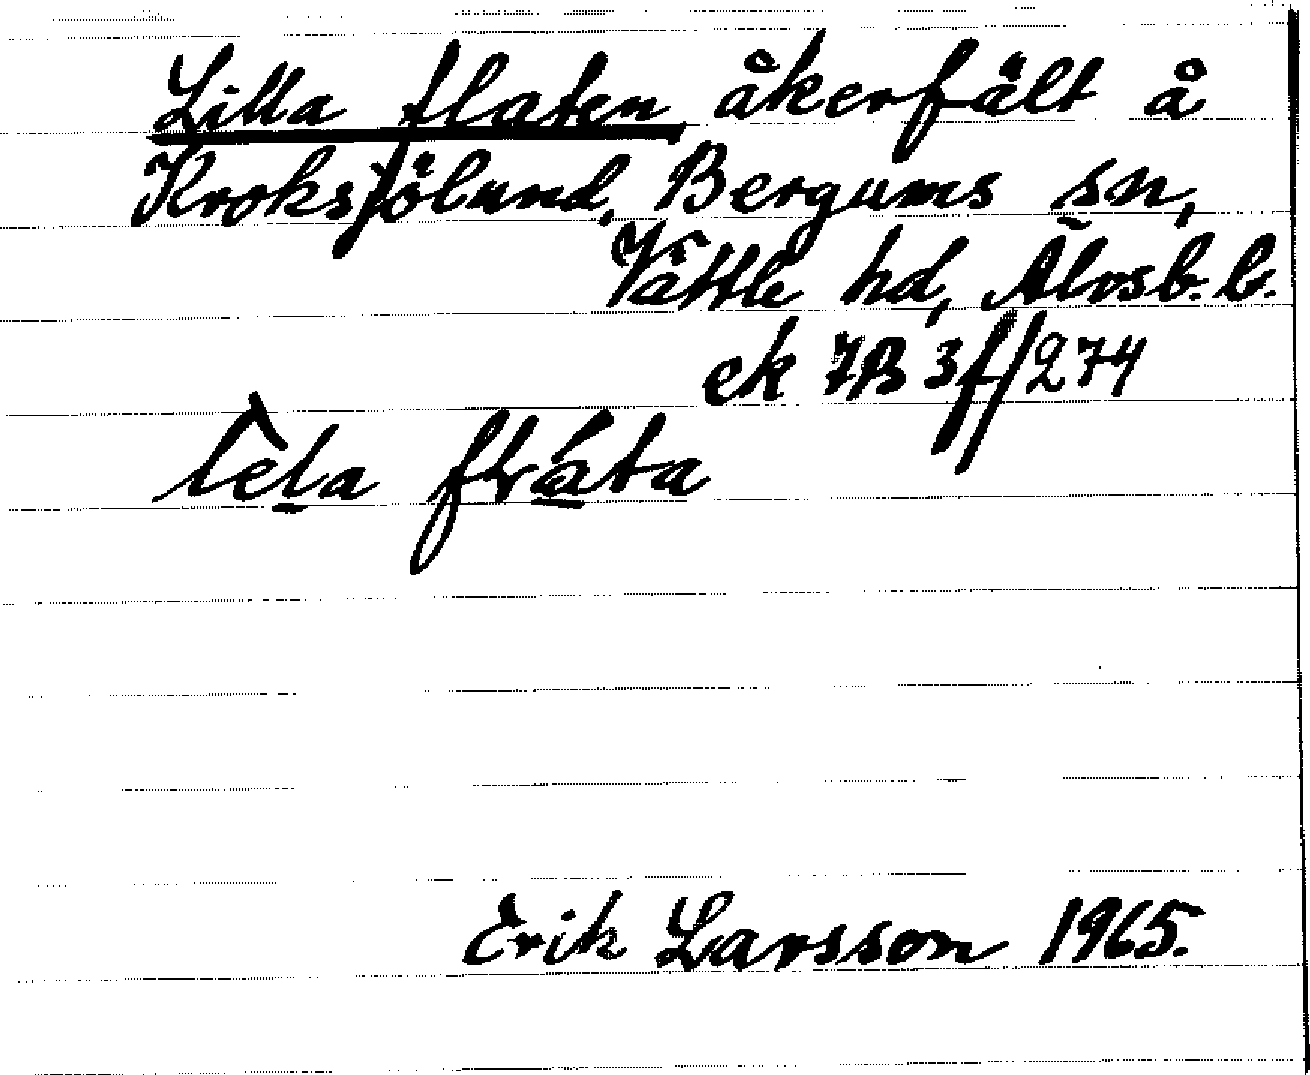 Lilla flaten, åkerfält å
Kroksjölund, Bergums sn,
Vättle hd, Älvsb. l.
ek 7B 3f/274
Erik Larsson 1965.